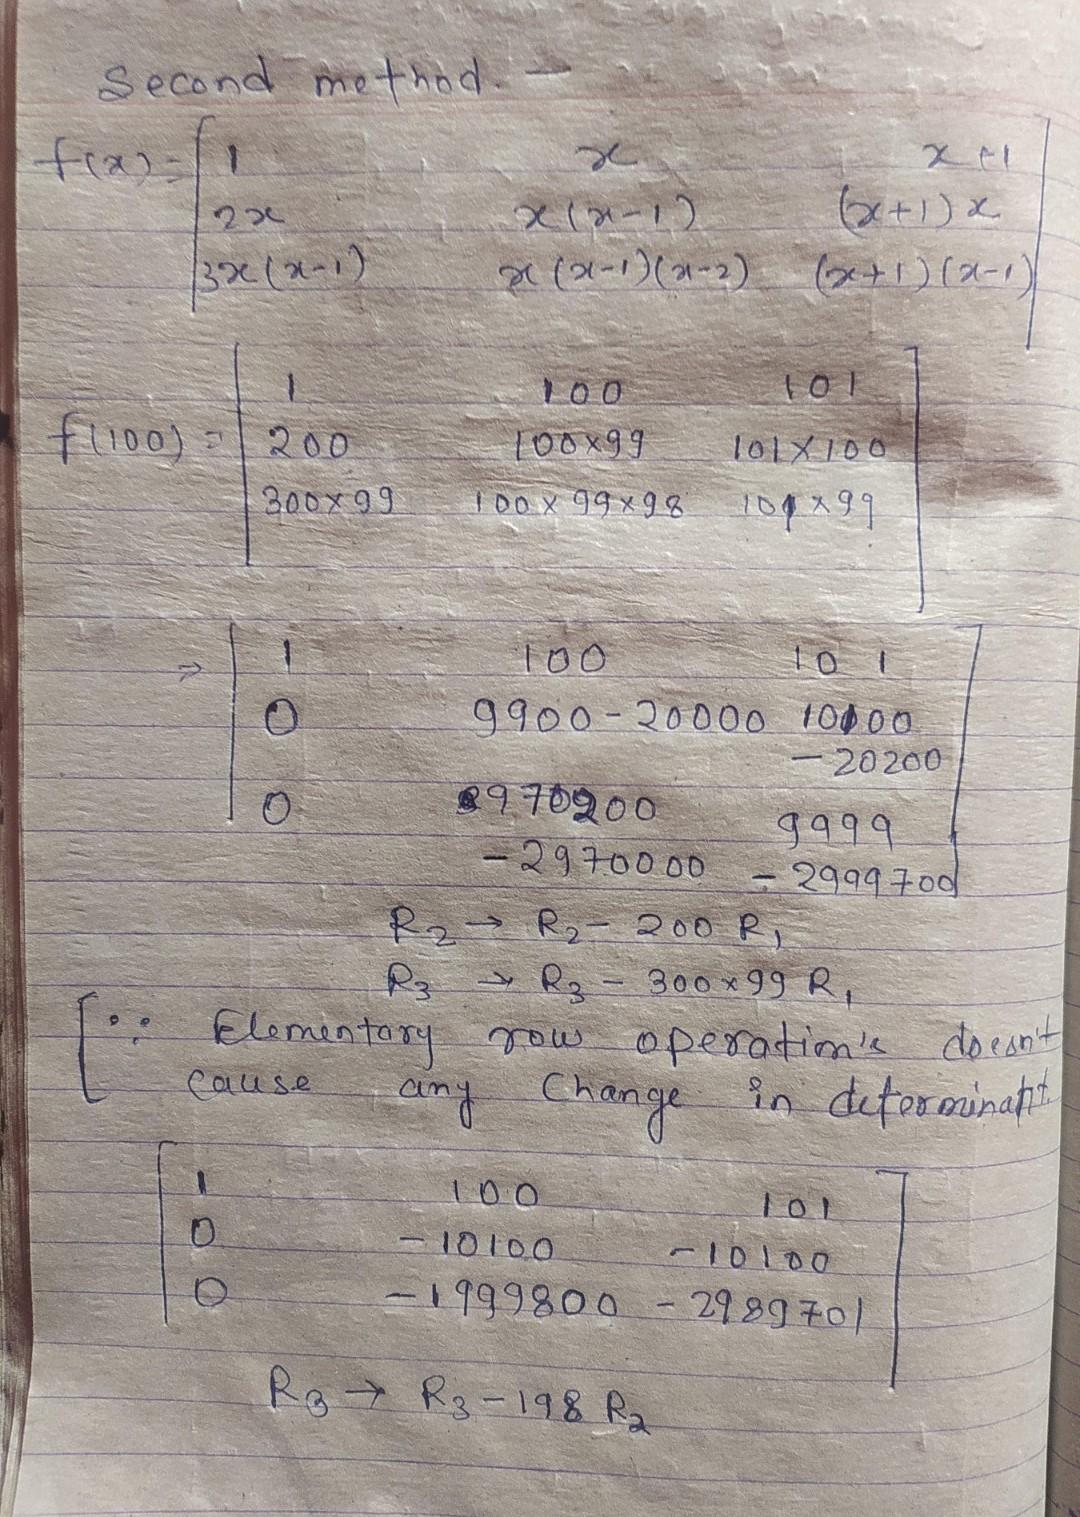 Second method. —
f(x) = | 1 x x+1 |
| 2x x(x-1) (x+1)x |
| 3x(x-1) x(x-1)(x-2) (x+1)(x-1) |
| 1 100 101 |
f(100) = | 200 100×99 101×100 |
| 300×99 100×99×98 101×99 |
⇒ | 1 100 101 |
| 0 9900-20000 10100 |
-20200
| 0 970200 9999 |
-2970000 -2999700
R2 → R2 - 200 R1
R3 → R3 - 300×99 R1
[∵ Elementary row operation's doesn't
cause any change in determinant.
| 1 100 101 |
| 0 -10100 -10100 |
| 0 -1999800 -2989701 |
R3 → R3 - 198 R2